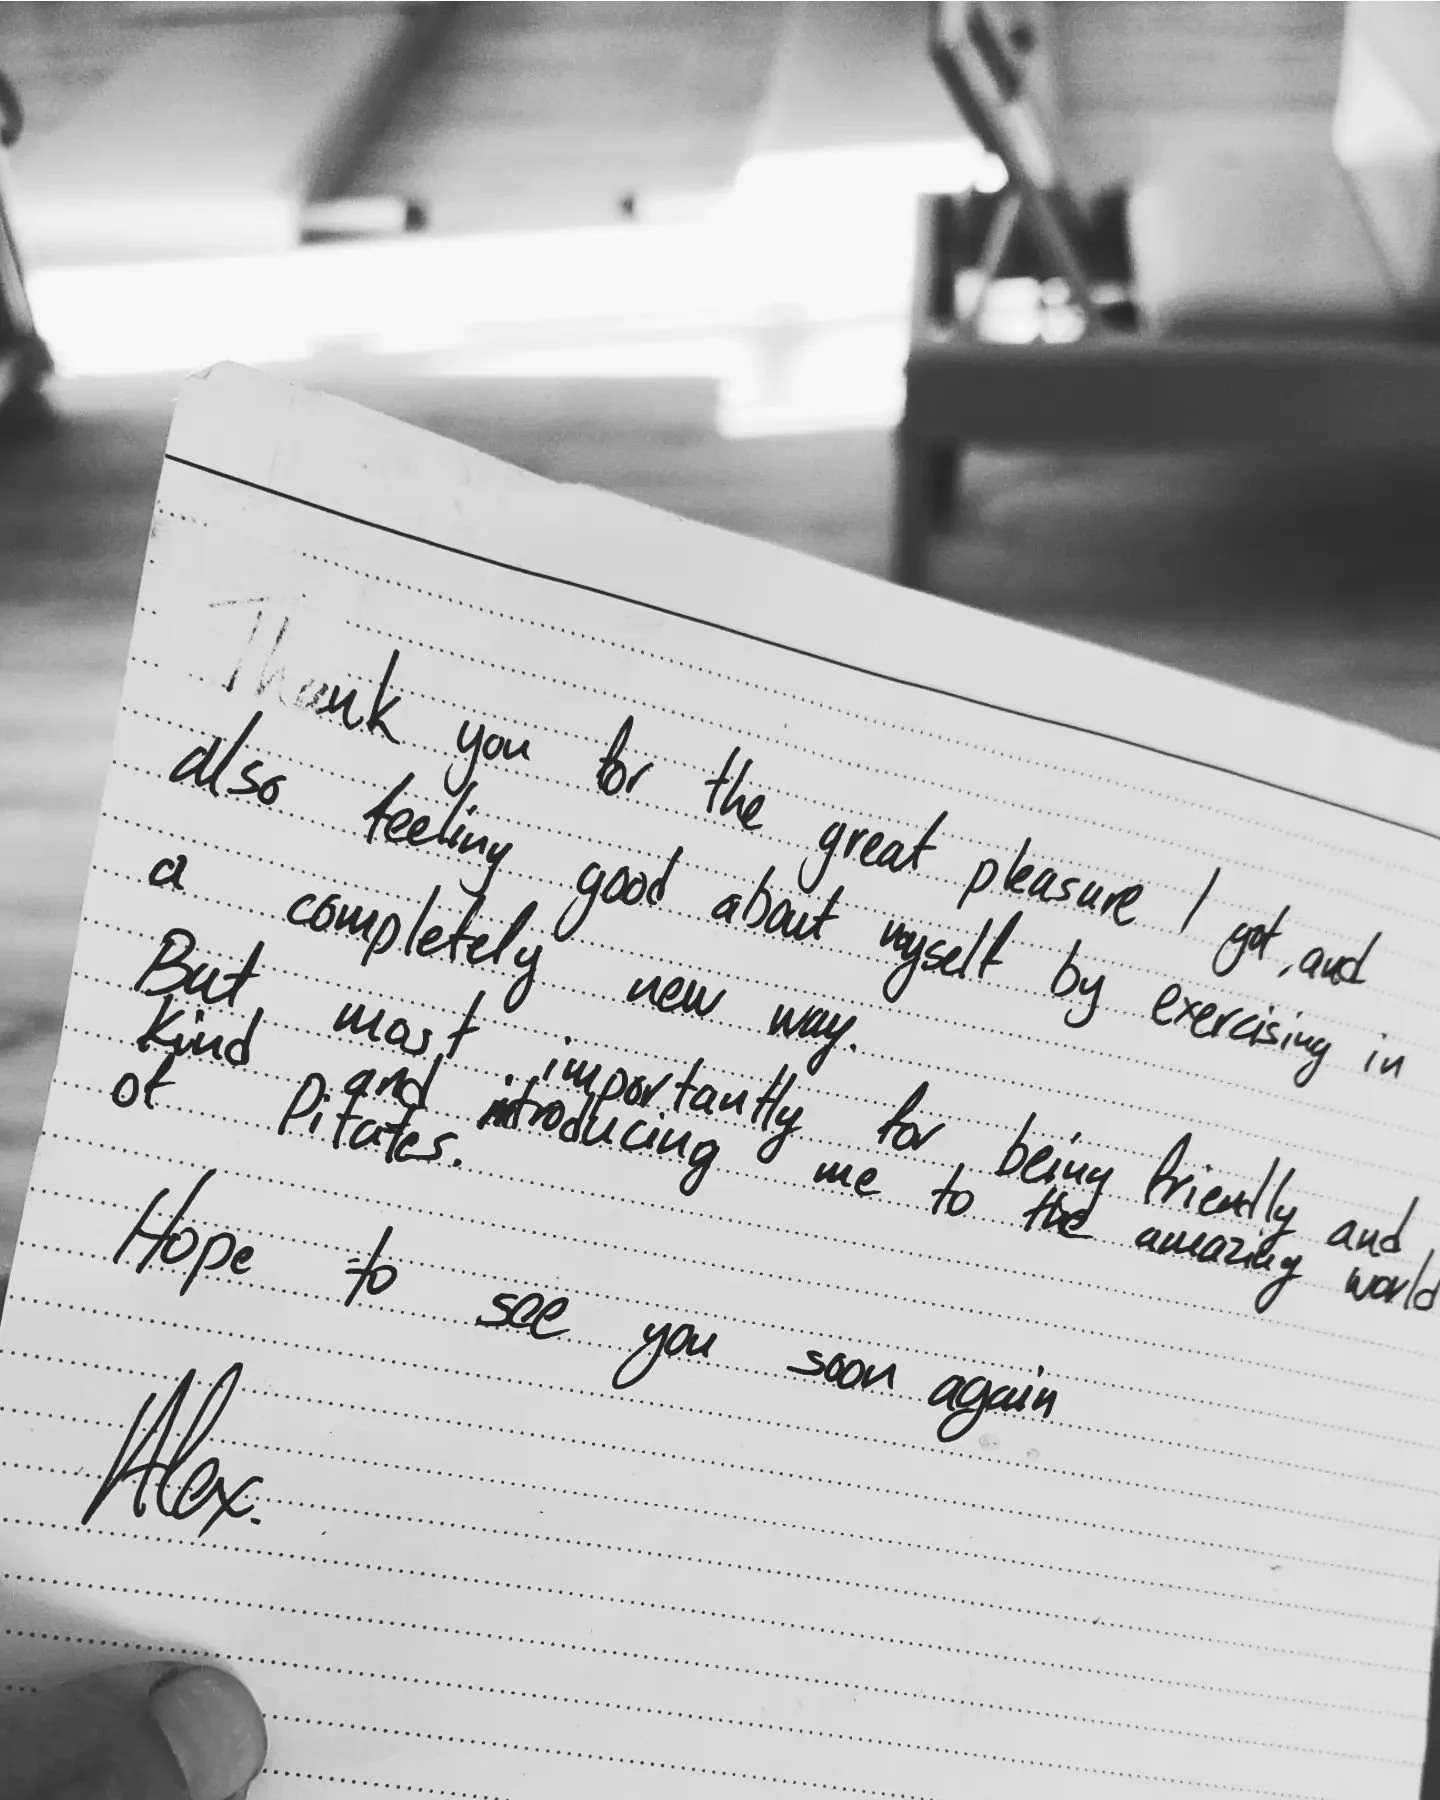 Thank you for the great pleasure I got, and
also feeling good about myself by exercising in
a completely new way.
But most importantly for being friendly and
kind and introducing me to the amazing world
of Pilates.
Hope to see you soon again
Alex.